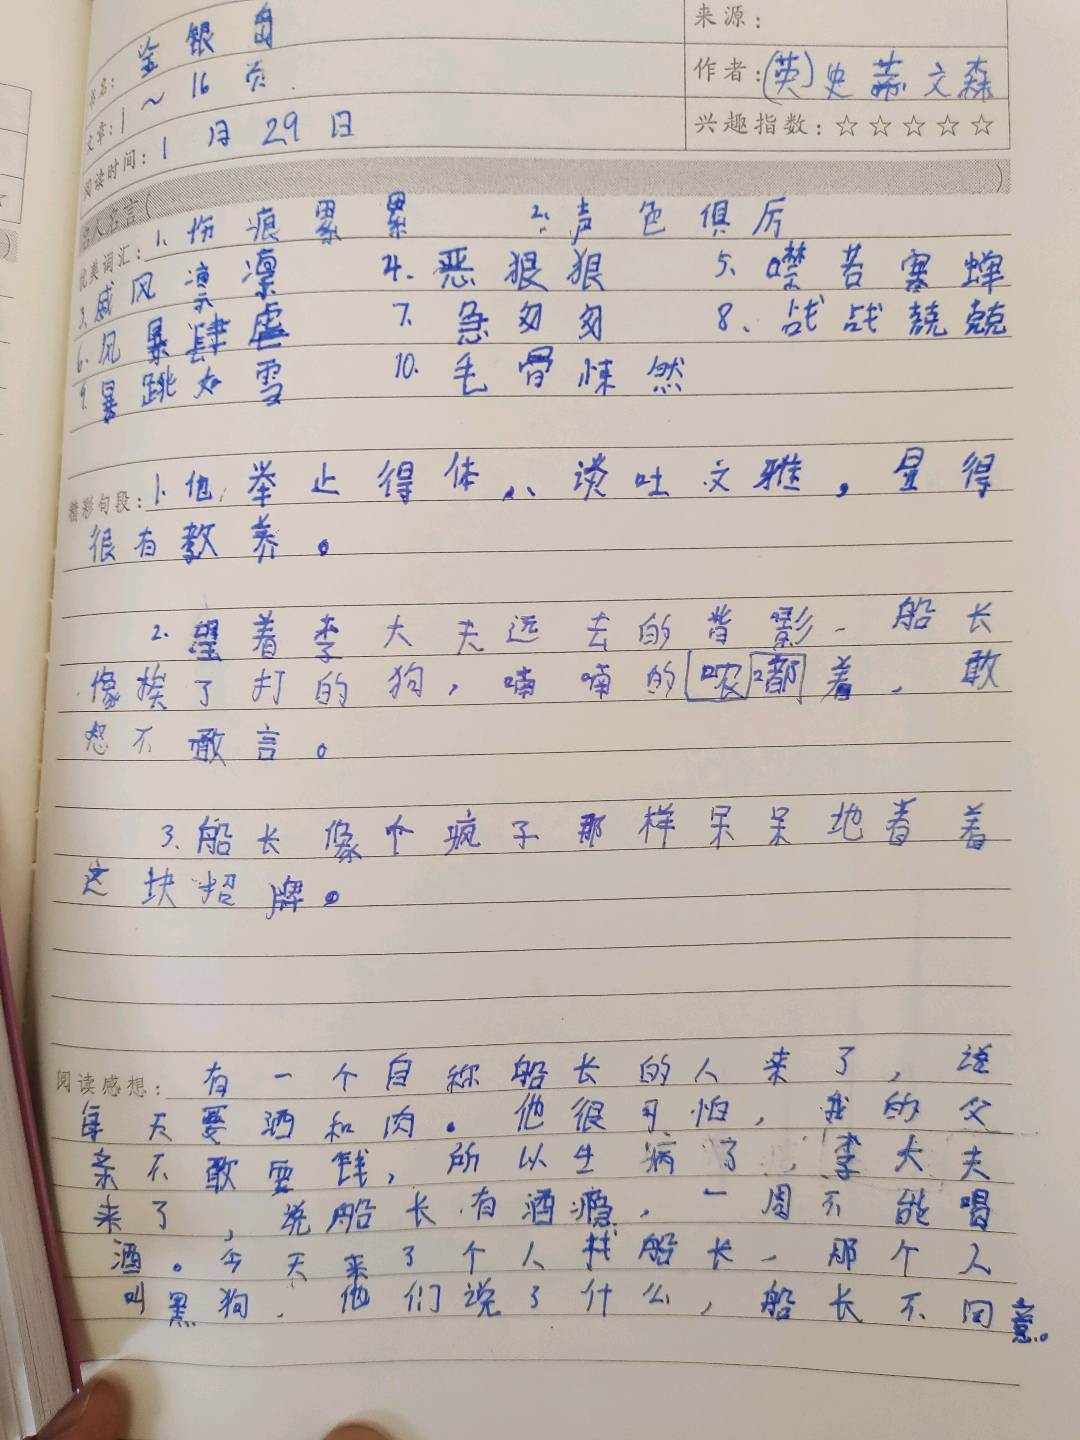 书名: 金银岛
来源:
文章: 1~16页
作者: (英)史蒂文森
阅读时间: 1月29日
兴趣指数: ☆☆☆☆☆
名人名言( )
优美词汇: 1. 伤痕累累 2. 声色俱厉
3. 威风凛凛 4. 恶狠狠 5. 噤若寒蝉
6. 风暴肆虐 7. 急匆匆 8. 战战兢兢
9. 暴跳如雪 10. 毛骨悚然
精彩句段: 1. 他举止得体、谈吐文雅,显得
很有教养。
2. 望着李大夫远去的背影,船长
像挨了打的狗,喃喃的哝嘟着,敢
怒不敢言。
3. 船长像个疯子那样呆呆地看着
这块招牌。
阅读感想: 有一个自称船长的人来了,说
每天要酒和肉。他很可怕,我的父
亲不敢要钱,所以生病了,李大夫
来了,说船长有酒瘾,一周不能喝
酒。今天来了个人找船长,那个人
叫黑狗,他们说了什么,船长不同意。